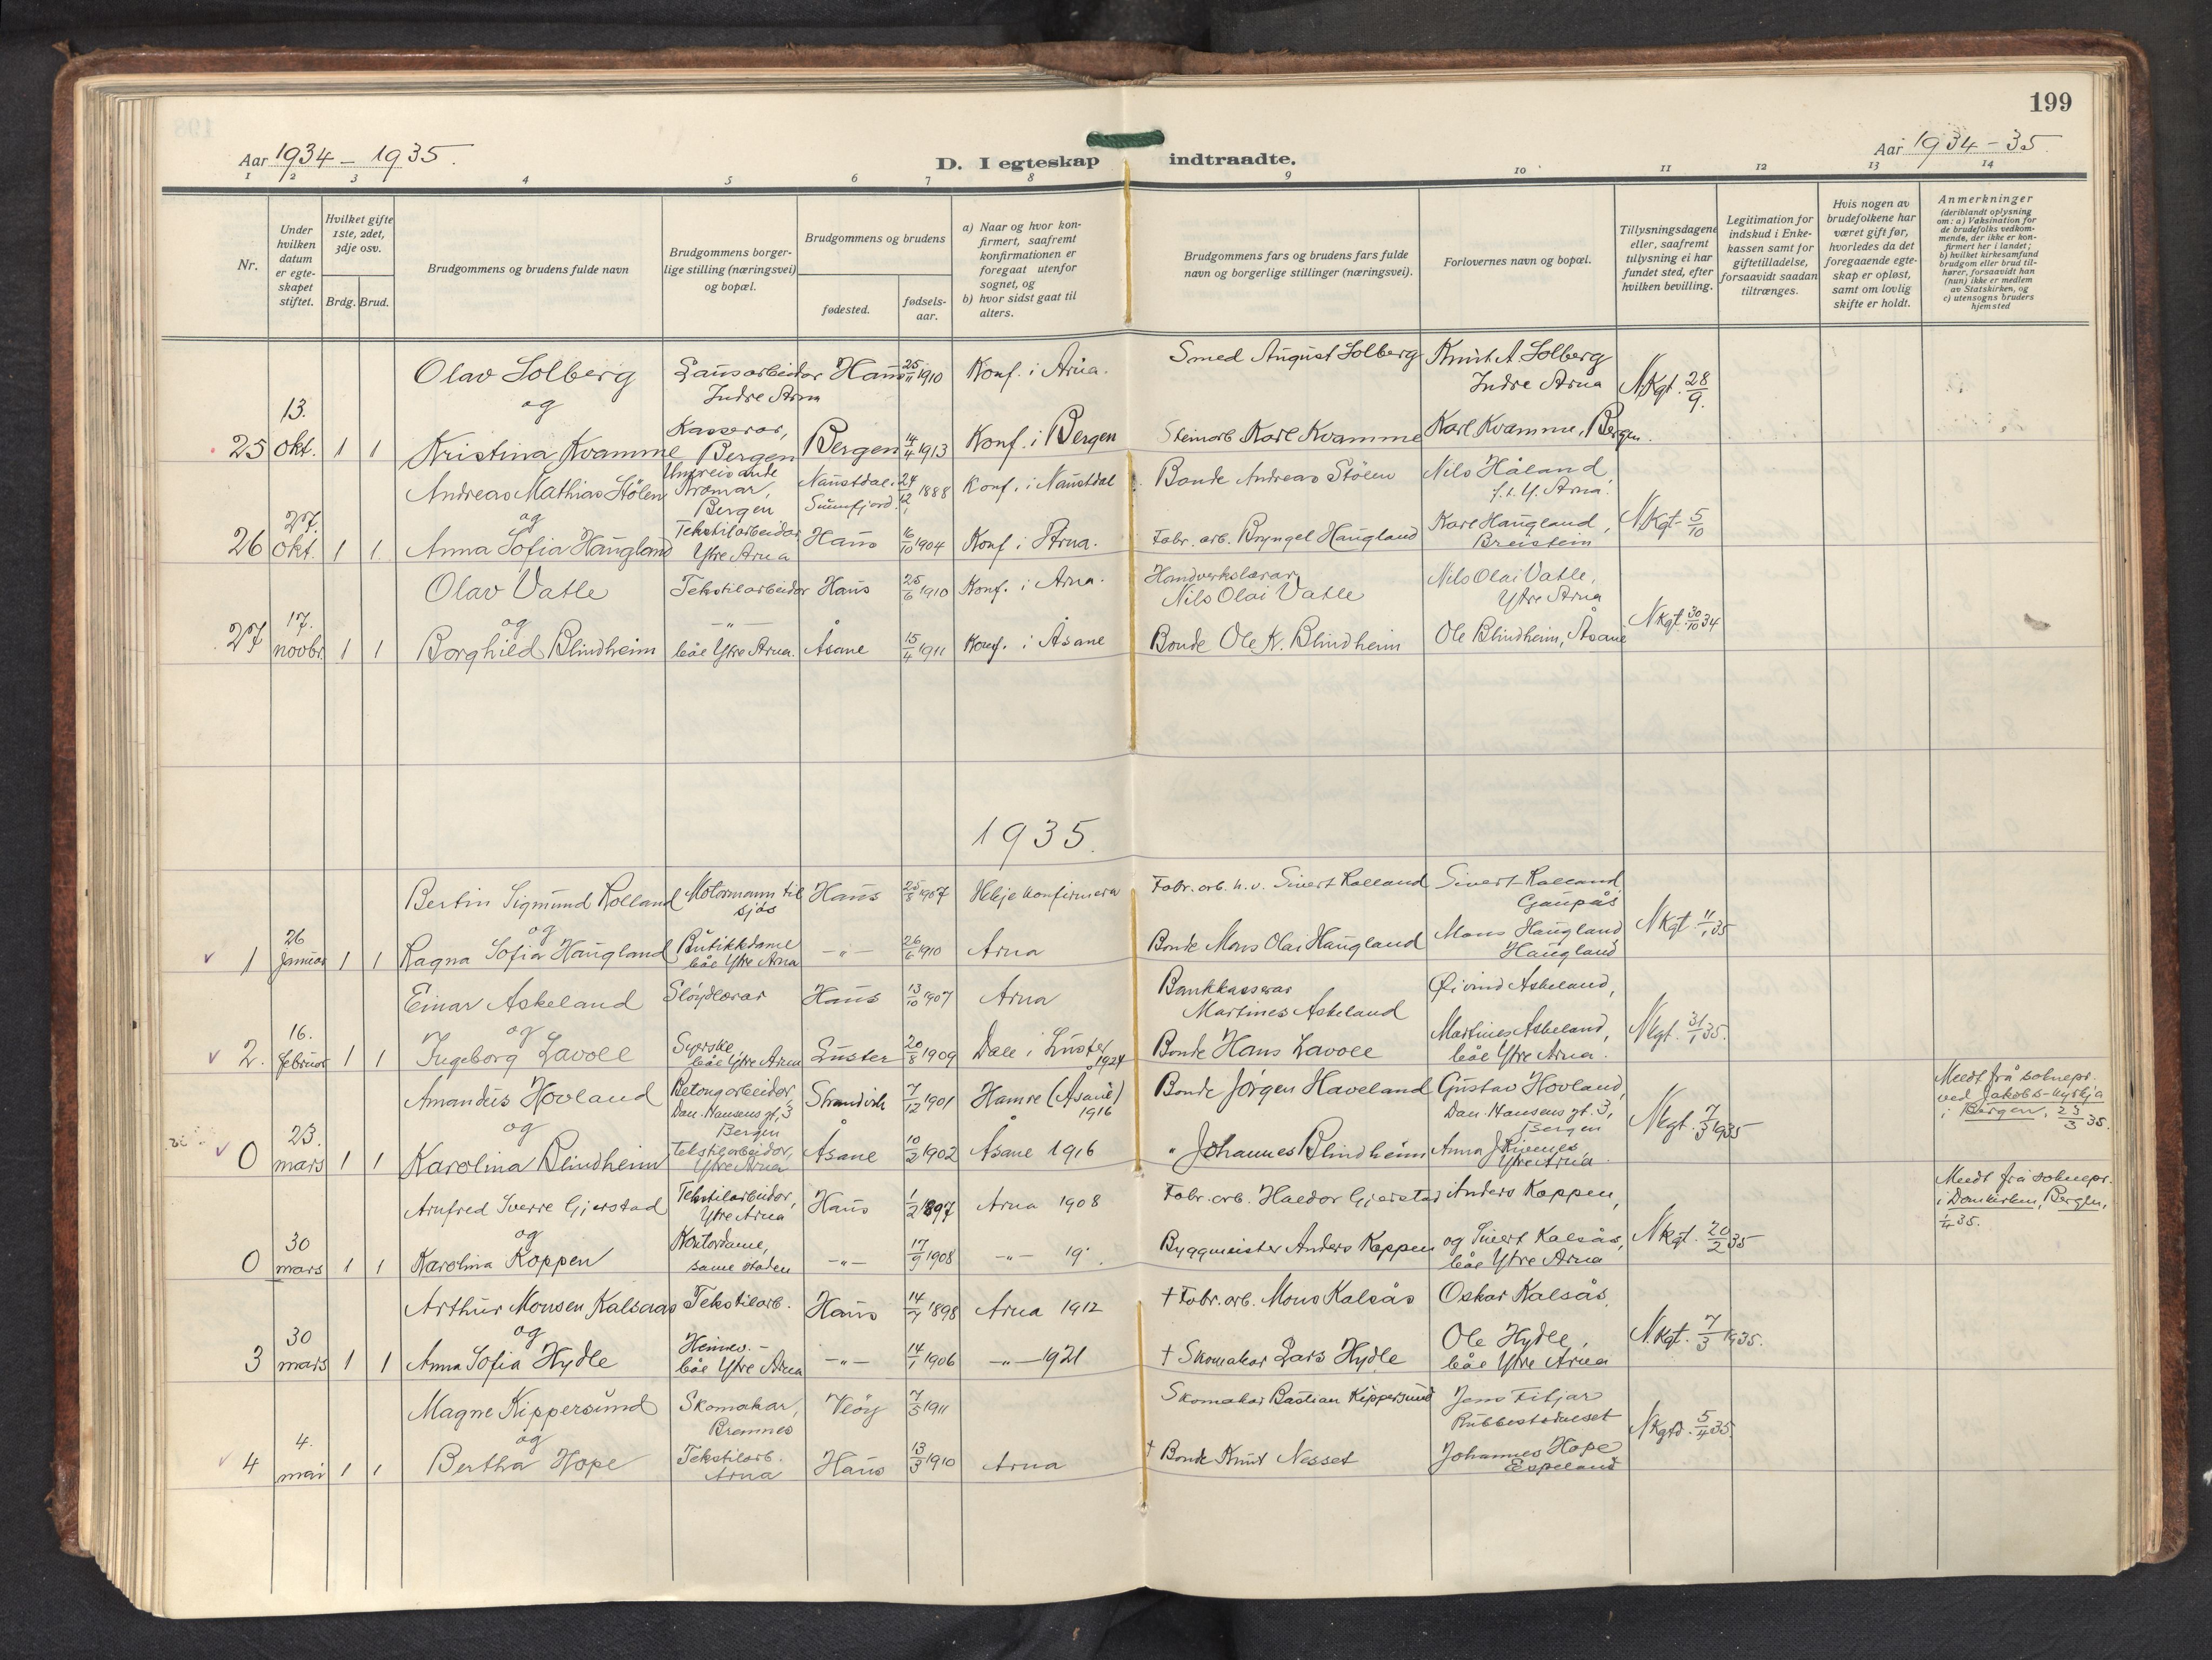 199
Aar 1934 - 1935.
D. I egteskap indtraadte.
Aar 1934 - 35.
1 2 3 4 5 6 7 8 9 10 11 12 13 14
Nr.
Under hvilken datum er egteskapet stiftet.
Hvilket gifte 1ste, 2det, 3dje osv.
Brdg. Brud.
Brudgommens og brudens fulde navn
Brudgommens borgerlige stilling (næringsvei) og bopæl.
Brudgommens og brudens
fødested.
fødselsaar.
a) Naar og hvor konfirmert, saafremt konfirmationen er foregaat utenfor sognet, og
b) hvor sidst gaat til alters.
Brudgommens fars og brudens fars fulde navn og borgerlige stillinger (næringsvei).
Forlovernes navn og bopæl.
Tillysningsdagene eller, saafremt tillysning ei har fundet sted, efter hvilken bevilling.
Legitimation for indskud i Enkekassen samt for giftetilladelse, forsaavidt saadan tiltrænges.
Hvis nogen av brudefolkene har været gift før, hvorledes da det foregaaende egteskap er opløst, samt om lovlig skifte er holdt.
Anmerkninger
(deriblandt oplysning om: a) Vaksination for de brudefolks vedkommende, der ikke er konfirmert her i landet; b) hvilket kirkesamfund brudgom eller brud tilhører, forsaavidt han (hun) ikke er medlem av Statskirken, og c) utensogns bruders hjemsted
Olav Solberg Lausarbeidar Haus 25/11 1910 Konf. i Arna. Smed August Solberg Knut A. Solberg
og Indre Arna Indre Arna N.Kgt. 28/9.
25 13. okt. 1 1 Kristina Kvamme Kasserar, Bergen Bergen 14/4 1913 Konf. i Bergen Steinarb. Karl Kvamme Karl Kvamme, Bergen.
Andreas Mathias Stølen Umreisande Kræmar, Bergen Naustdal. Sunnfjord. 24/12 1888 Konf. i Naustdal Bonde Andreas Stølen Nils Håland f. i Y. Arna.
og
26 27. okt. 1 1. Anna Sofia Haugland Tekstilarbeidar Ytre Arna Haus 16/10 1904 Konf i Arna. Fabr. arb. Bryngel Haugland Karl Haugland, Breistein N.Kgt. 5/10
Olav Vatle Tekstilarbeidar Haus 25/6 1910 Konf. i Arna. Handverkslærar Nils Olai Vatle Nils Olai Vatle, Ytre Arna
og
27 17. novbr. 1 1 Borghild Blindheim -"- båe Ytre Arna. Åsane 15/4 1911 Konf. i Åsane Bonde Ole K. Blindheim Ole Blindheim, Åsane N.Kgt. 30/10 34
1935.
Bertin Sigmund Rolland Motormann til sjøs Haus 25/8 1907 Ikkje konfirmera Fabr. arb. h. v. Sivert Rolland Sivert Rolland Gaupås
og
1 26 januar 1 1 Ragna Sofia Haugland Butikkdame båe Ytre Arna -"- 26/6 1910 Arna Bonde Mons Olai Haugland Mons Haugland Haugland N Kgt. 11/1 35
Einar Askeland Sløydlærar Haus 13/10 1907 Arna Bankkasserar Martines Askeland Øivind Askeland,
og
2. 16. februar 1 1 Ingeborg Lavoll Syerske båe Ytre Arna Luster 20/8 1909 Dale i Luster 1924 Bonde Hans Lavoll Martines Askeland, båe Ytre Arna. Nkgt. 31/1 35.
Amandus Hovland Betongarbeidar, Dan. Hansens gt. 3 Bergen Strandvik 7/12 1901 Hamre (Åsane) 1916 Bonde Jørgen Haveland Gustav Hovland, Dan. Hansens gt. 3, Bergen
Meldt frå soknepr. ved Jakobs-kyrkja i Bergen, 25/3 35.
og
0 23. mars 1 1 Karolina Blindheim Tekstilarbeidar, Ytre Arna Åsane 10/2 1902 Åsane 1916 " Johannes Blindheim Anna J. Rivenes, Ytre Arna. Nkgt. 7/3 1935
Arnfred Sverre Gjerstad Tekstilarbeidar, Ytre Arna Haus 1/2 1897 Arna 1908 Fabr. arb. Haldor Gjerstad Anders Koppen,
Meldt frå soknepr. i Domkirken, Bergen, 1/4 35.
og
0 30 mars 1 1 Karolina Koppen Kontordame, same staden -"- 17/9 1908 -"- 19 . Byggmeister Anders Koppen og Sivert Kalsås, båe Ytre Arna N kgt. 20/2 35
Arthur Monsen Kalsaas Tekstilarb. Haus 14/7 1898 Arna 1912 † Fabr. arb. Mons Kalsås Oskar Kalsås,
og
3 30 mars 1 1 Anna Sofia Hydle Heimev. - båe Ytre Arna -"- 14/1 1906 -"- 1921 † Skomakar Lars Hydle Ole Hydle, båe Ytre Arna N.kgt. 7/3 1935.
Magne Kippersund Skomakar, Bremnes Veøy 7/5 1911 Skomakar Bastian Kippersund Jens Fitjar Rubbestadneset
og
4 4. mai 1 1 Bertha Hope Tekstilarb. Arna Haus 13/3 1910 Arna † Bonde Knut Nesset Johannes Hope Espeland N kgtd. 5/4 35.